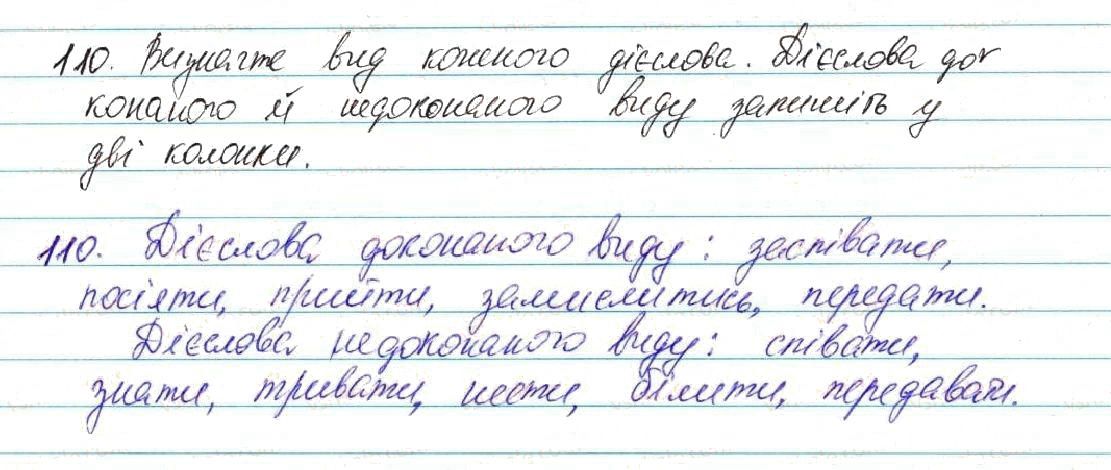 110. Визначте вид кожного дієслова. Дієслова до-
конаного й недоконаного виду запишіть у
дві колонки.
110. Дієслова доконаного виду: заспівати,
посіяти, прийти, замислитись, передати.
Дієслова недоконаного виду: співати,
знати, тривати, нести, білити, передавати.